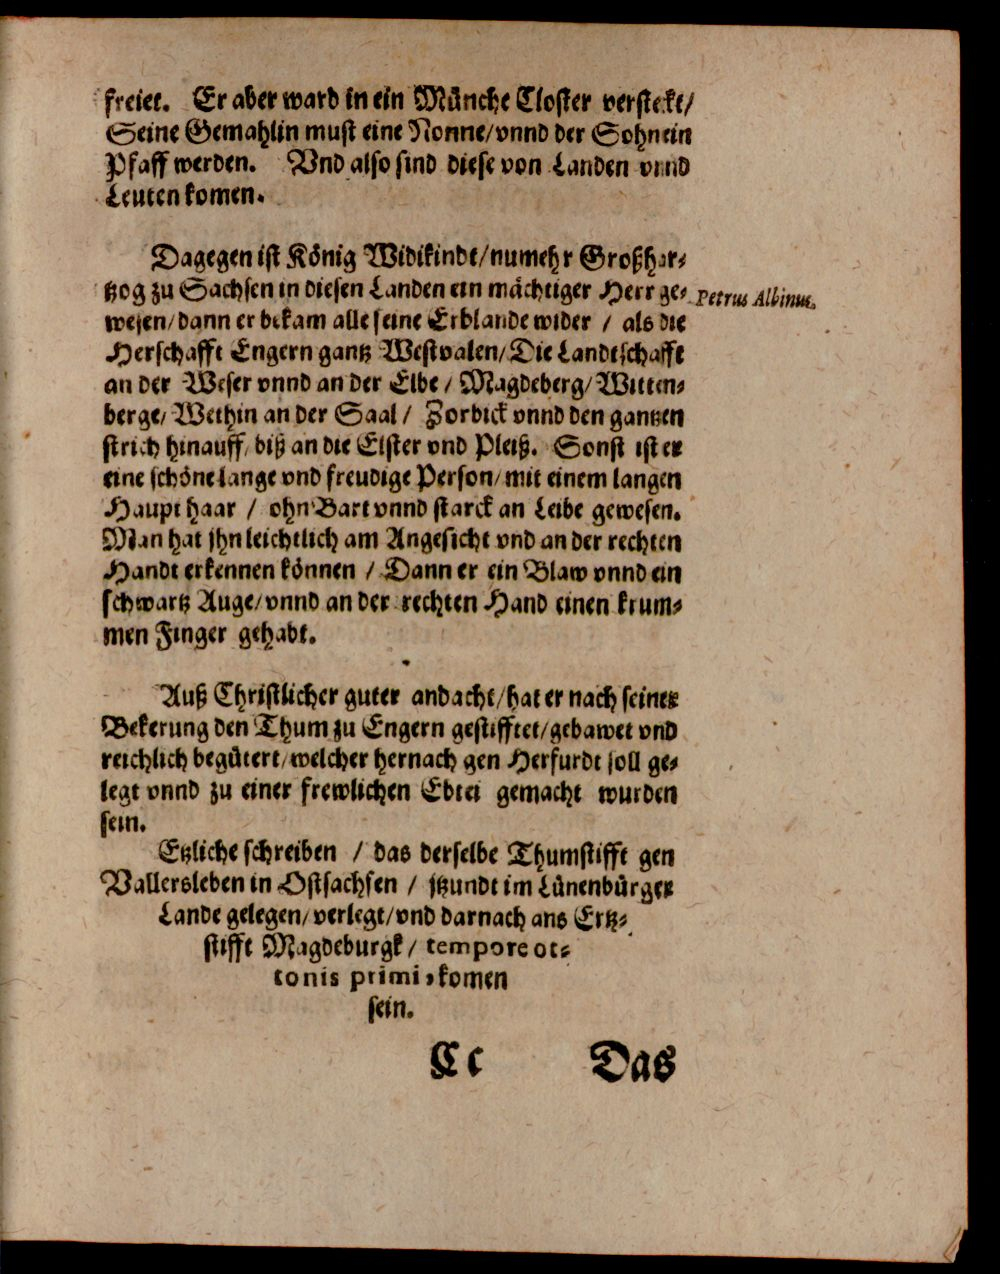 freiet. Er aber ward in ein Münche Closter verstekt/
Seine Gemahlin must eine Nonne/vnnd der Sohn ein
Pfaff werden. Vnd also sind diese von Landen vnnd
Leuten komen.
Dagegen ist König Widikindt/numehr Großher⸗
tzog zu Sachsen in diesen Landen ein mächtiger Herr ge⸗
Petrus Albinus.
wesen/dann er bekam alle seine Erblande wider / als die
Herschafft Engern gantz Westvalen/Die Landtschafft
an der Weser vnnd an der Elbe / Magdeberg/Witten⸗
berge/Wethin an der Saal / Zorbick vnnd den gantzen
strich hinauff/biß an die Elster vnd Pleiß. Sonst ist er
eine schöne lange vnd freudige Person/mit einem langen
Haupt haar / ohn Bart vnnd starck an Leibe gewesen.
Man hat jhn leichtlich am Angesicht vnd an der rechten
Handt erkennen können / Dann er ein Blaw vnnd ein
schwartz Auge/vnnd an der rechten Hand einen krum⸗
men Finger gehabt.
Auß Christlicher guter andacht/hat er nach seiner
Bekerung den Thum zu Engern gestifftet/gebawet vnd
reichlich begütert/welcher hernach gen Herfurdt soll ge⸗
legt vnnd zu einer frewlichen Ebtei gemacht wurden
sein.
Etzliche schreiben / das derselbe Thumstifft gen
Vallersleben in Ostsachsen / jtzundt im Lünenbürger
Lande gelegen/verlegt/vnd darnach ans Ertz⸗
stifft Magdeburgk / tempore ot⸗
tonis primi, komen
sein.
Cc Das